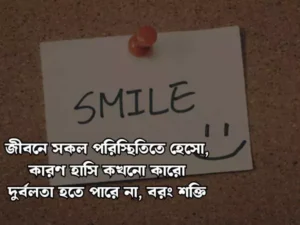 SMILE
জীবনে সকল পরিস্থিতিতে হেসো,
কারণ হাসি কখনো কারো
দুর্বলতা হতে পারে না, বরং শক্তি